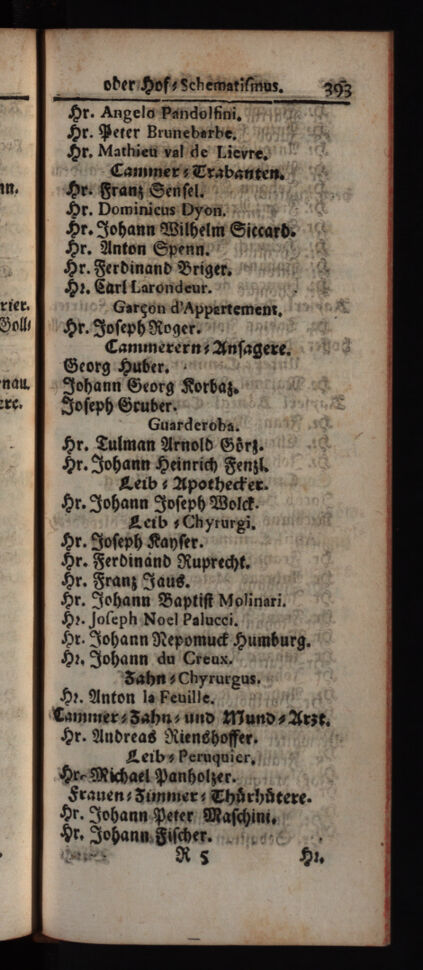 oder Hof-Schematismus. 393
Hr. Angelo Pandolfini.
Hr. Peter Brunebarbe.
Hr. Mathieu val de Lievre.
Cammer-Trabanten.
Hr. Franz Sensel.
Hr. Dominicus Dyon.
Hr. Johann Wilhelm Siccard.
Hr. Anton Spenn.
Hr. Ferdinand Briger.
Hr. Carl Larondeur.
Garçon d'Appartement.
Hr. Joseph Roger.
Cammerern-Ansagere.
Georg Huber.
Johann Georg Korbaz.
Joseph Gruber.
Guarderoba.
Hr. Tulman Arnold Görz.
Hr. Johann Heinrich Fenzl.
Leib-Apothecker.
Hr. Johann Joseph Wolck.
Leib-Chyrurgi.
Hr. Joseph Kayser.
Hr. Ferdinand Ruprecht.
Hr. Franz Jaus.
Hr. Johann Baptist Molinari.
Hr. Joseph Noel Palucci.
Hr. Johann Nepomuck Humburg.
Hr. Johann du Creux.
Zahn-Chyrurgus.
Hr. Anton la Feuille.
Cammer-Zahn-und Mund-Arzt.
Hr. Andreas Rienshoffer.
Leib-Peruquier.
Hr. Michael Panholzer.
Frauen-Zimmer-Thürhütere.
Hr. Johann Peter Maschini.
Hr. Johann Fischer.
R 5 Hr.